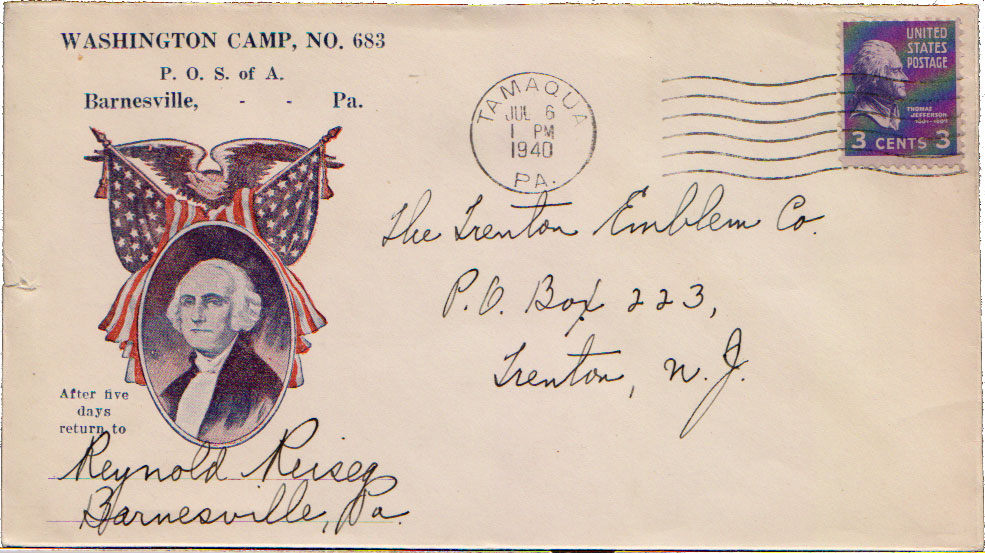 WASHINGTON CAMP, NO. 683
P. O. S. of A.
Barnesville, - - Pa.
TAMAQUA
JUL 6
1 PM
1940
PA.
UNITED
STATES
POSTAGE
THOMAS
JEFFERSON
1801-1809
3 CENTS 3
The Trenton Emblem Co.
P.O. Box 223,
Trenton, N. J.
After five
days
return to
Reynold
Barnesville, Pa.